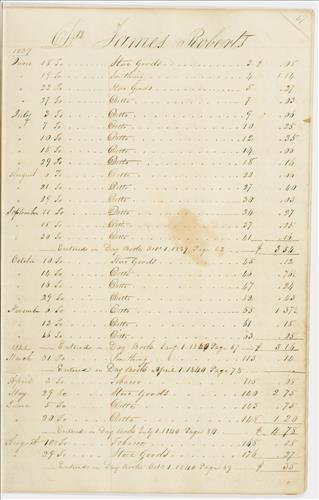 Dr James Roberts
1839
June 18 To Store Goods 3 $ .08
" 19 To Smithing 4 1.14
" 22 To Store Goods 5 .27
" 27 To Ditto 7 .03
July 3 To Ditto 9 .06
" 7 To Ditto 10 .25
" 10 To Ditto 12 .35
" 15 To Ditto 14 .06
" 29 To Ditto 18 .16
August 6 To Ditto 20 .06
21 To Ditto 27 .40
29 To Ditto 30 .03
September 11 To Ditto 34 .27
18 To Ditto 37 .25
30 To Ditto 41 .16
Entered in Day Book Oct 1. 1839 Page $ 3.54
October 10 To Store Goods 45 .12
14 To Ditto 46
16 To Ditto 47 .24
29 To Ditto 52 .43
November 6 To Ditto 55
12 To Ditto 61 .18
16 To Ditto 63 .05
1840 Entered in Day Book Jany 1. 1840 Page 67 $ 3.14
March 31 To Smithing 113 .14
Entered in Day Book April 1. 1840 Page 78
April 2 To Tobacco 115 .05
May 29 To Store Goods 140 2 75
June 5 To Ditto 143 .75
" 20 To Ditto 148 1.20
Entered in Day Book July 1. 1840 Page 84 $ 4.75
August 10 To Tobacco 165 .08
" 29 To Store Goods 176 .27
Entered in Day Book Octr 1. 1840 Page 89 $ .35